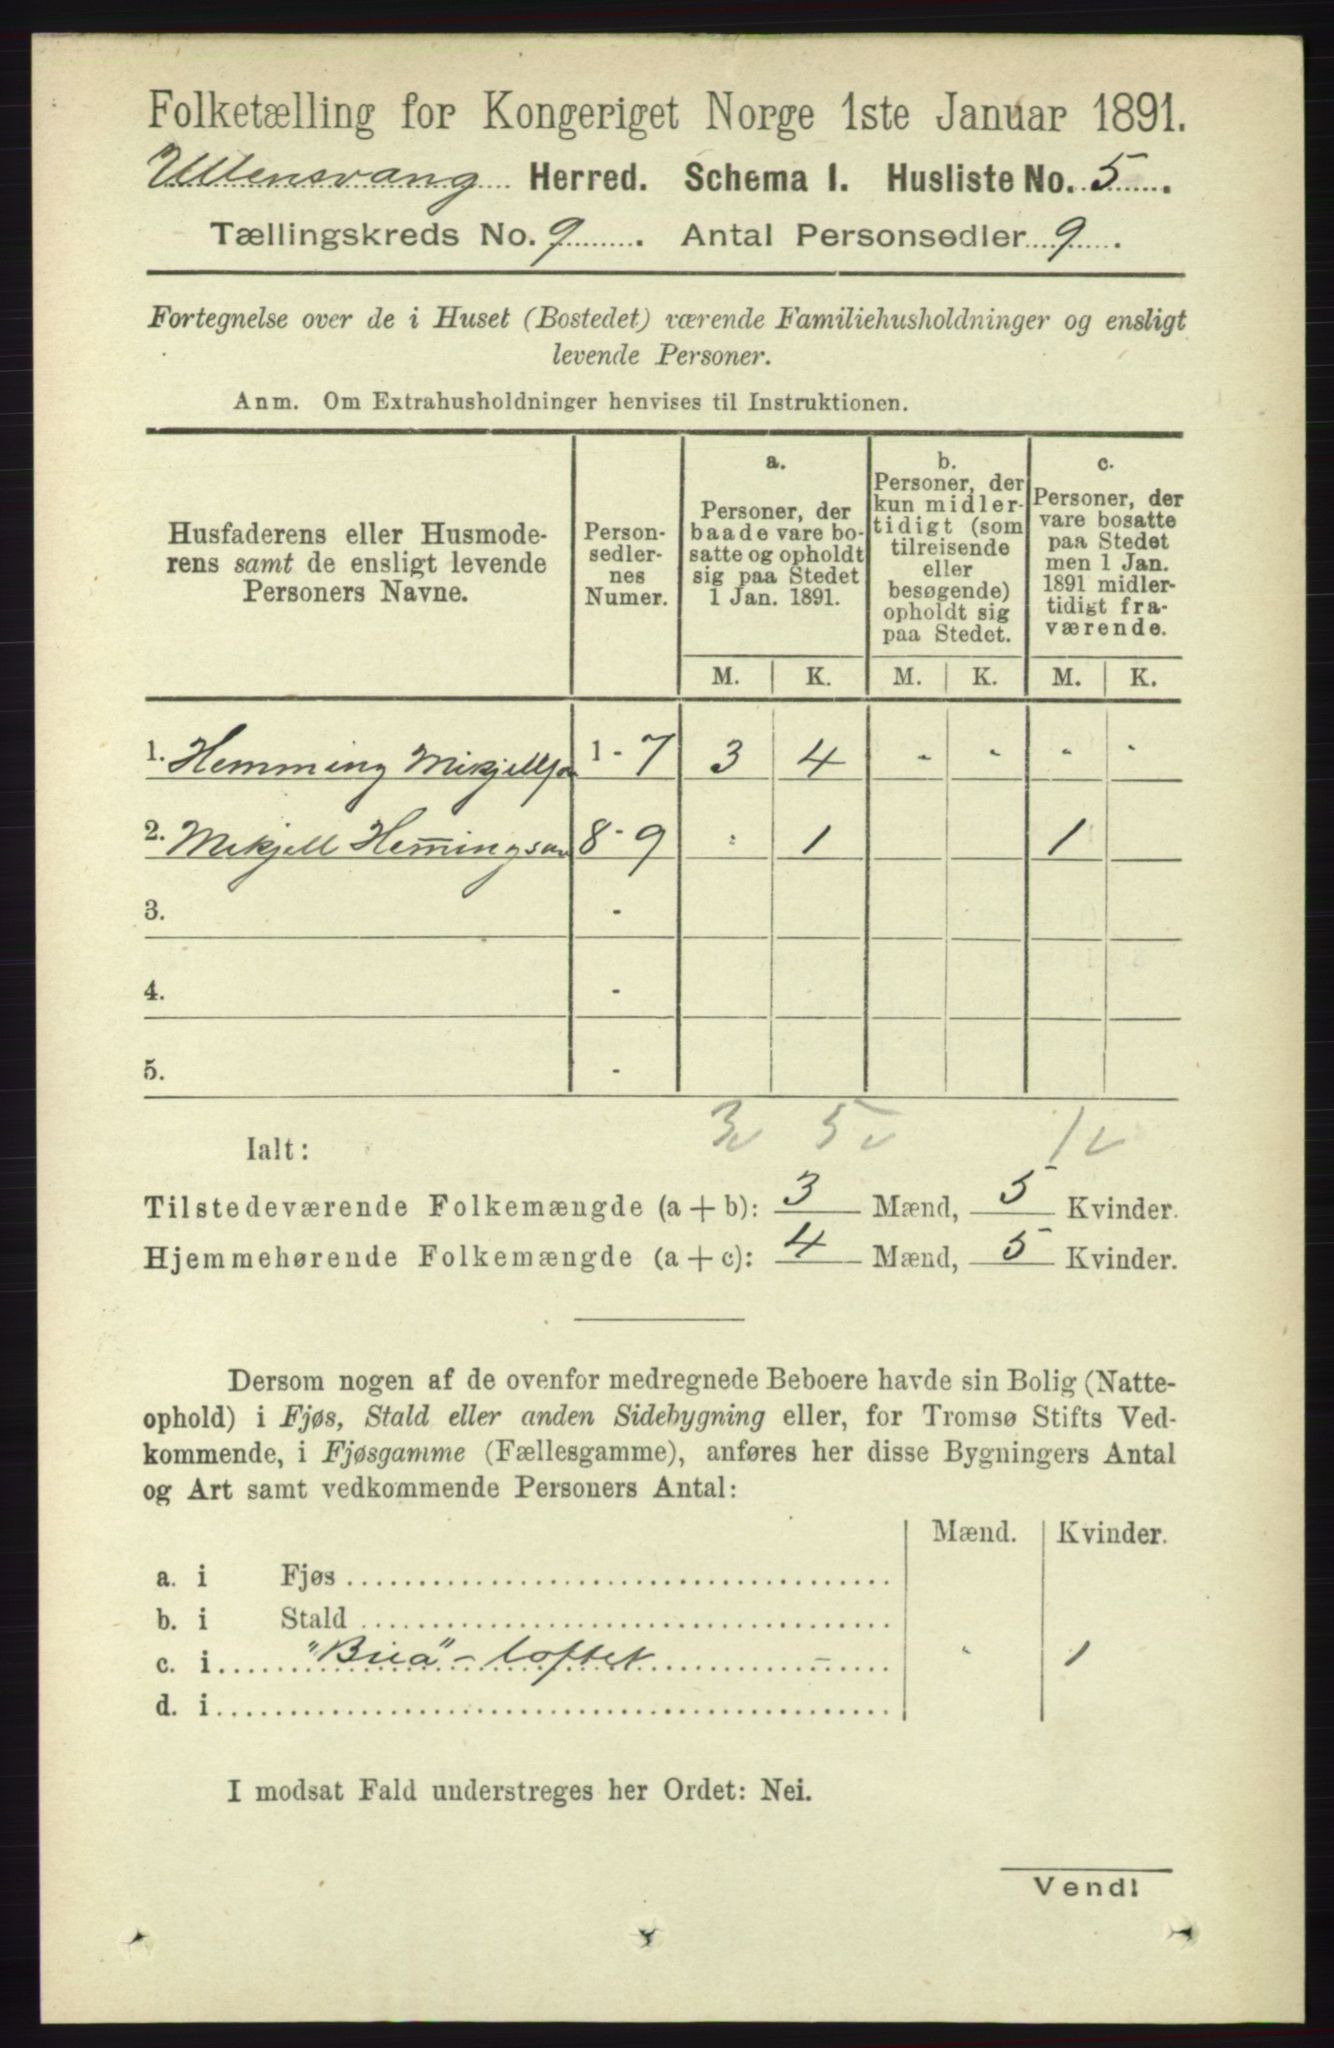 Folketælling for Kongeriget Norge 1ste Januar 1891.
Ullensvang Herred. Schema I. Husliste No. 5.
Tællingskreds No. 9. Antal Personsedler 9.
Fortegnelse over de i Huset (Bostedet) værende Familiehusholdninger og ensligt
levende Personer.
Anm. Om Extrahusholdninger henvises til Instruktionen.
Husfaderens eller Husmode-
rens samt de ensligt levende
Personers Navne.
Person-
sedler-
nes
Numer.
a.
Personer, der
baade vare bo-
satte og opholdt
sig paa Stedet
1 Jan. 1891.
b.
Personer, der
kun midler-
tidigt (som
tilreisende
eller
besøgende)
opholdt sig
paa Stedet.
c.
Personer, der
vare bosatte
paa Stedet
men 1 Jan.
1891 midler-
tidigt fra-
værende.
M. K. M. K. M. K.
1. Hemming Mikjellson 1 - 7 3 4 - - - -
2. Mikjell Hemmingson 8 - 9 - 1 1
3. -
4. -
5. -
Ialt: 3 5 1
Tilstedeværende Folkemængde (a + b): 3 Mænd, 5 Kvinder.
Hjemmehørende Folkemængde (a + c): 4 Mænd, 5 Kvinder.
Dersom nogen af de ovenfor medregnede Beboere havde sin Bolig (Natte-
ophold) i Fjøs, Stald eller anden Sidebygning eller, for Tromsø Stifts Ved-
kommende, i Fjøsgamme (Fællesgamme), anføres her disse Bygningers Antal
og Art samt vedkommende Personers Antal:
Mænd. Kvinder.
a. i Fjøs
b. i Stald
c. i "Bua" - loftet - - 1
d. i
I modsat Fald understreges her Ordet: Nei.
Vend!